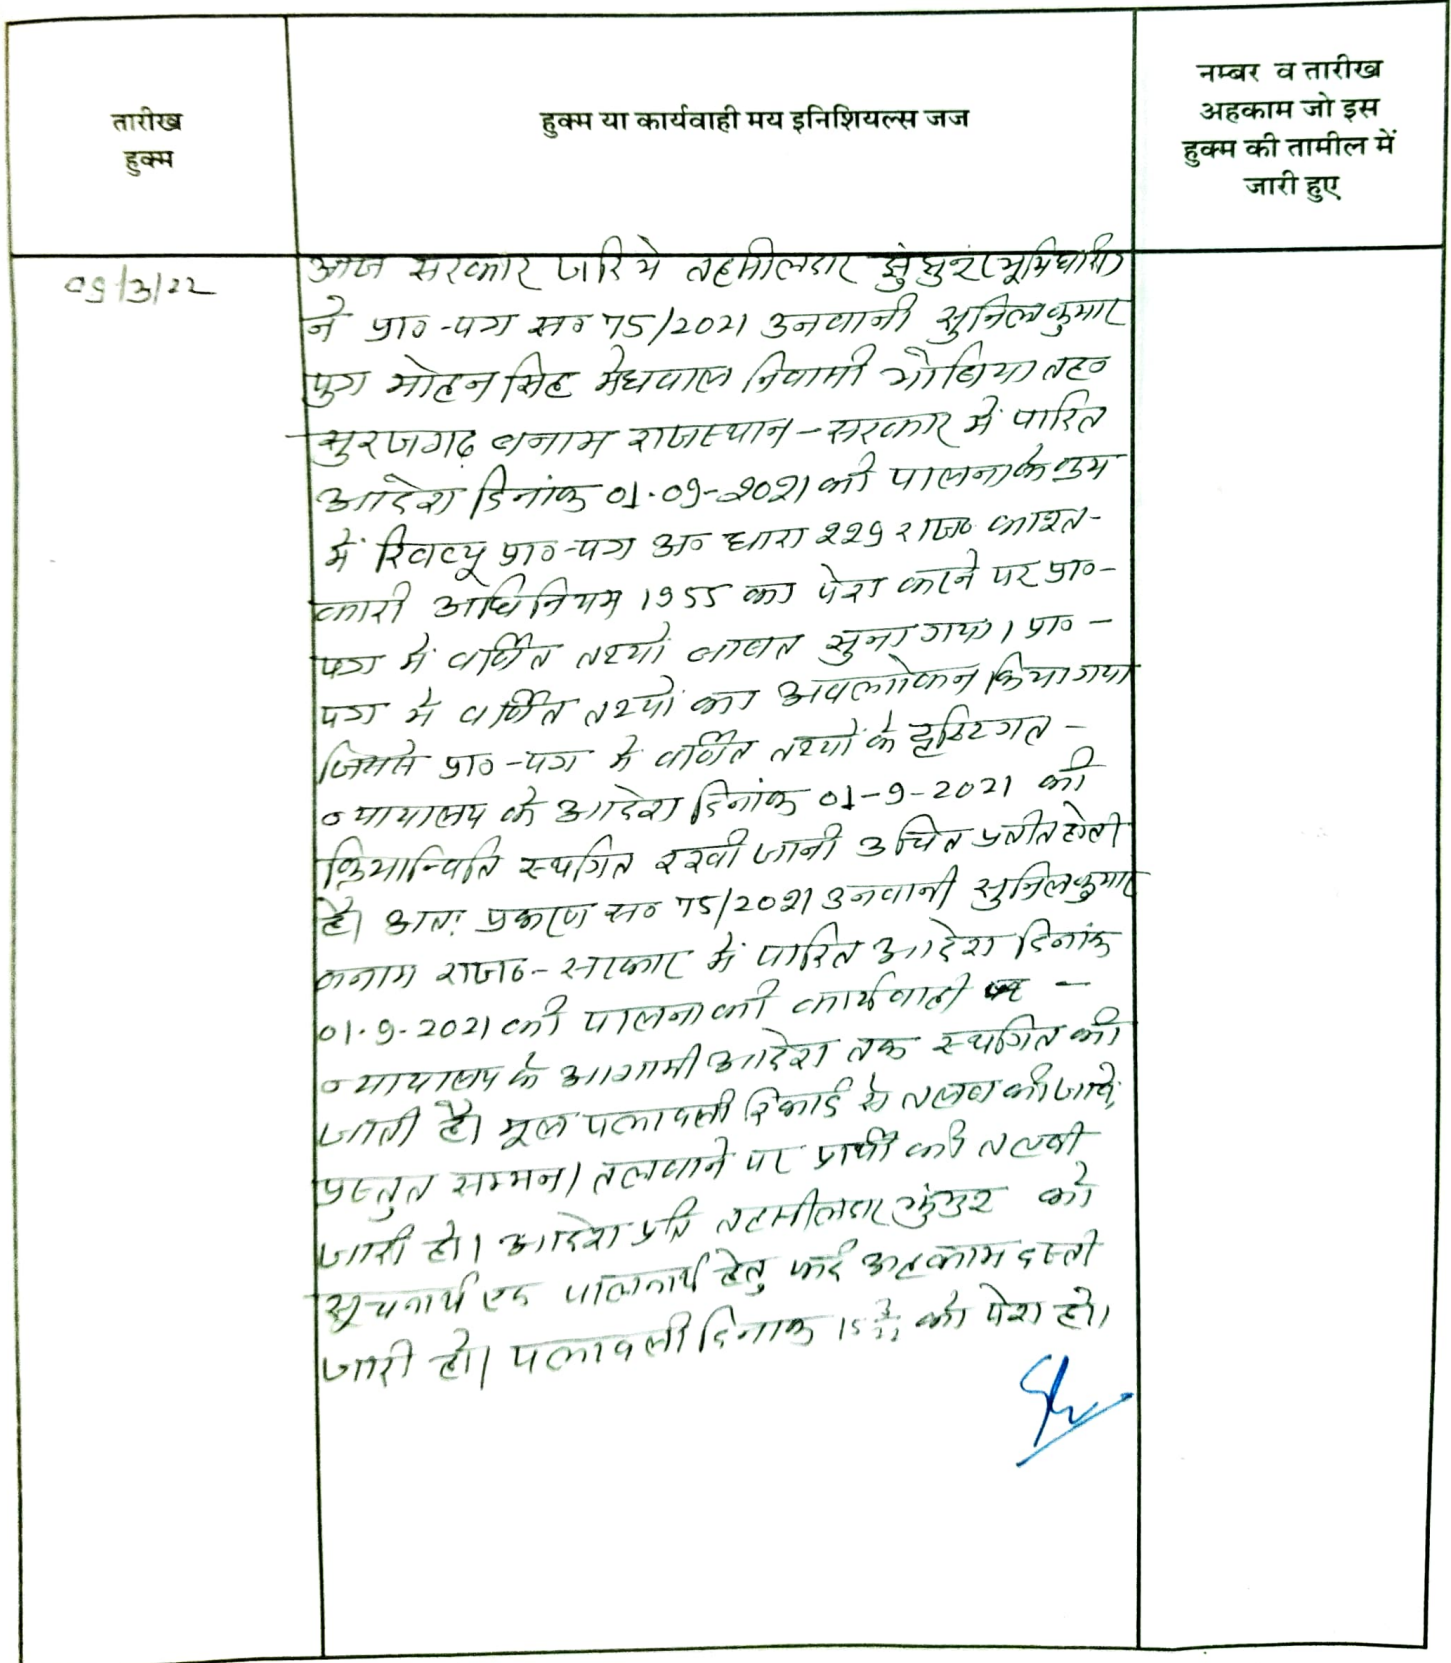 तारीख
हुक्म
हुक्म या कार्यवाही मय इनिशियल्स जज
नम्बर व तारीख
अहकाम जो इस
हुक्म की तामील में
जारी हुए
09/3/22
आज सरकार जरिये तहसीलदार झुंझुनूं (भूमिधारी)
ने प्रा०-पत्र स० 75/2021 उनवानी सुनिलकुमार
पुत्र मोहनसिंह मेघवाल निवासी तह०
सुरजगढ़ बनाम राजस्थान-सरकार में पारित
आदेश दिनांक 01.09-2021 की पालना के क्रम
में रिवव्यू प्रा०-पत्र अ० धारा 229 राज० काश्त-
कारी अधिनियम 1955 का पेश करने पर प्रा०-
पत्र में वर्णित तथ्यों बाबत सुना गया। प्रा०-
पत्र में वर्णित तथ्यों का अवलोकन किया गया
जिससे प्रा०-पत्र में वर्णित तथ्यों के दृष्टिगत-
न्यायालय के आदेश दिनांक 01-9-2021 की
क्रियान्विति स्थगित रखी जानी उचित प्रतीत होती
है। अतः प्रकरण स० 75/2021 उनवानी सुनिलकुमार
बनाम राज०-सरकार में पारित आदेश दिनांक
01.9.2021 की पालना की कार्यवाही -
न्यायालय के आगामी आदेश तक स्थगित की
जाती है। मूल पत्रावली रिकार्ड से तलब की जावे,
प्रस्तुत सम्मन/तलबाने पर प्रार्थी की तलबी
जारी हो। आदेश प्रति तहसीलदार झुंझुनूं को
सूचनार्थ एवं पालनार्थ हेतु फर्द अहकाम दस्ती
जारी हो। पत्रावली दिनांक 15 3/22 को पेश हो।